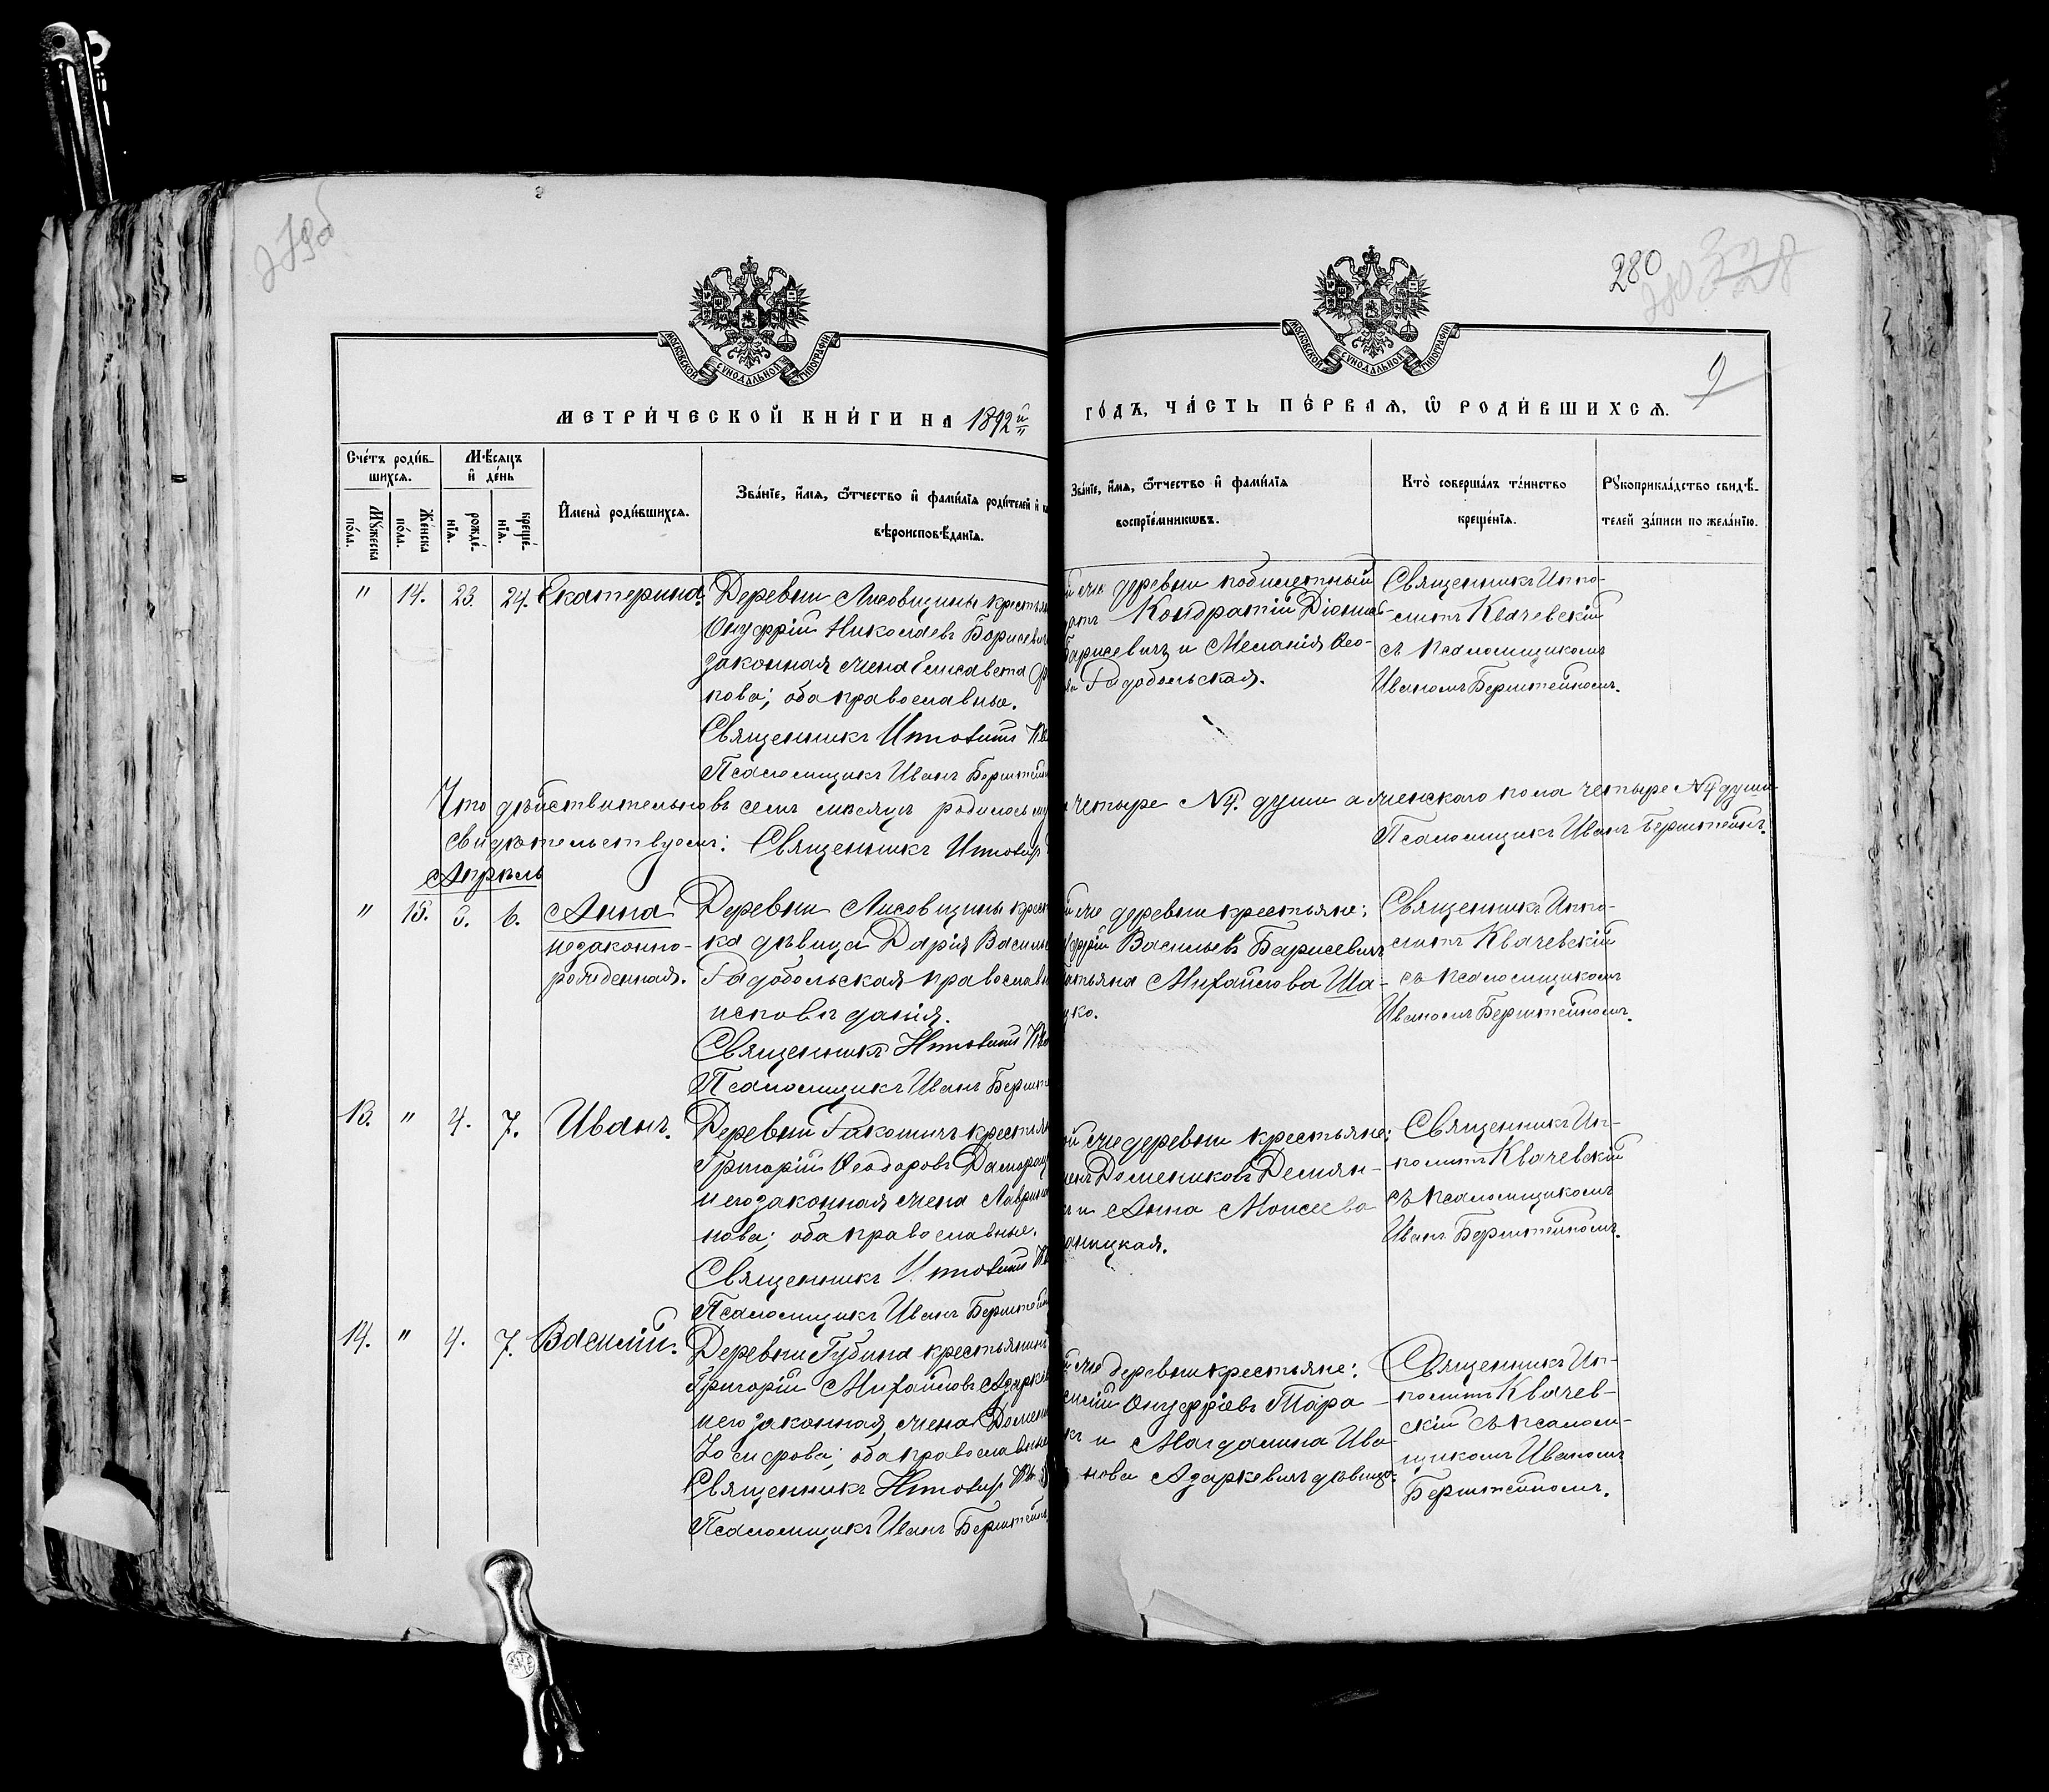 279об
280
МОСКОВСКОЙ СѴНОДАЛЬНОЙ ТИПОГРАФІИ
МОСКОВСКОЙ СѴНОДАЛЬНОЙ ТИПОГРАФІИ
9
МЕТРИ́ЧЕСКОЙ КНИ́ГИ НА 1892й
ГО́ДЪ, ЧА́СТЬ ПЕ́РВАЯ, Ѿ РОДИ́ВШИХСѦ.
Сче́тъ роди́в-
шихсѧ.
Мꙋ́жеска по́ла.
Же́нска по́ла.
М́ѣсѧцъ
и҆ де́нь
рожде́-
нїѧ.
креще́-
нїѧ.
И҆мена̀ роди́вшихсѧ.
Зва́нїе, и҆́мѧ, ѻ҆́тчество и҆ фами́лїѧ роди́телей и҆
вѣроисповѣ́данїѧ.
Зва́нїе, и҆́мѧ, ѻ҆́тчество и҆ фами́лїѧ
воспрїе́мникѡвъ.
Кто̀ соверша́лъ та́инство
креще́нїѧ.
Рꙋкоприкла́дство свидѣ́-
телей за́писи по жела́нїю.
" 14. 23. 24. Екатерина.
Деревни Лисовщины крестья
Онуфрій Николаевъ Борисевич
законная жена Елисавета
нова; оба православные.
Священникъ Ипполитъ Кв
Псаломщикъ Иванъ Берштейн
й же деревни
Кондратій Діонис-
Барисевичъ и Меланія Ѳео-
ва Радобольская.
Священникъ Иппо-
литъ Квачевскій
съ псаломщикомъ
Иваномъ Берштейномъ.
Что дѣйствительно въ семъ мѣсяцѣ родилось му
четыре №4. души а женскаго пола четыре №4 души
свидѣтельствуемъ: Священникъ Ипполитъ
Псаломщикъ Иванъ Берштейнъ.
Апрѣль
" 15. 3. 6. Анна
незаконно-
рожденная.
Деревни Лисовщины крест
ка дѣвица Дарія Василь
Радобольская православн
исповѣданія.
Священникъ Ипполитъ Кв
Псаломщикъ Иванъ Бершт
й же деревни крестьяне;
уфрій Васильевъ Барисевичъ
атьяна Михайлова Ша-
ко.
Священникъ Иппо-
литъ Квачевскій
съ псаломщикомъ
Иваномъ Берштейномъ.
13. " 4. 7. Иванъ.
Деревни Ракошичъ крестьян
Григорій Ѳеодоровъ
и его законная жена
нова; оба православные.
Священникъ Ипполитъ Кв
Псаломщикъ Иванъ Берштейн
ой же деревни крестьяне;
Домениковъ Демян-
и Анна Моисеева
аницкая.
Священникъ Ип-
политъ Квачевскій
съ псаломщикомъ
Иванъ Берштейномъ.
14. " 4. 7. Василій.
Деревни Губина крестьянинъ
Григорій Михайловъ Адарке
и его законная жена Домени
оба православные
Священникъ Ипполитъ Кв
Псаломщикъ Иванъ Берштейнъ.
й же деревни крестьяне:
силій Онуфріевъ Тара-
къ и Магдалина Ива-
нова Адаркевичъ дѣвица.
Священникъ Ип-
политъ Квачев-
скій съ псалом-
щикомъ Иваномъ
Берштейномъ.